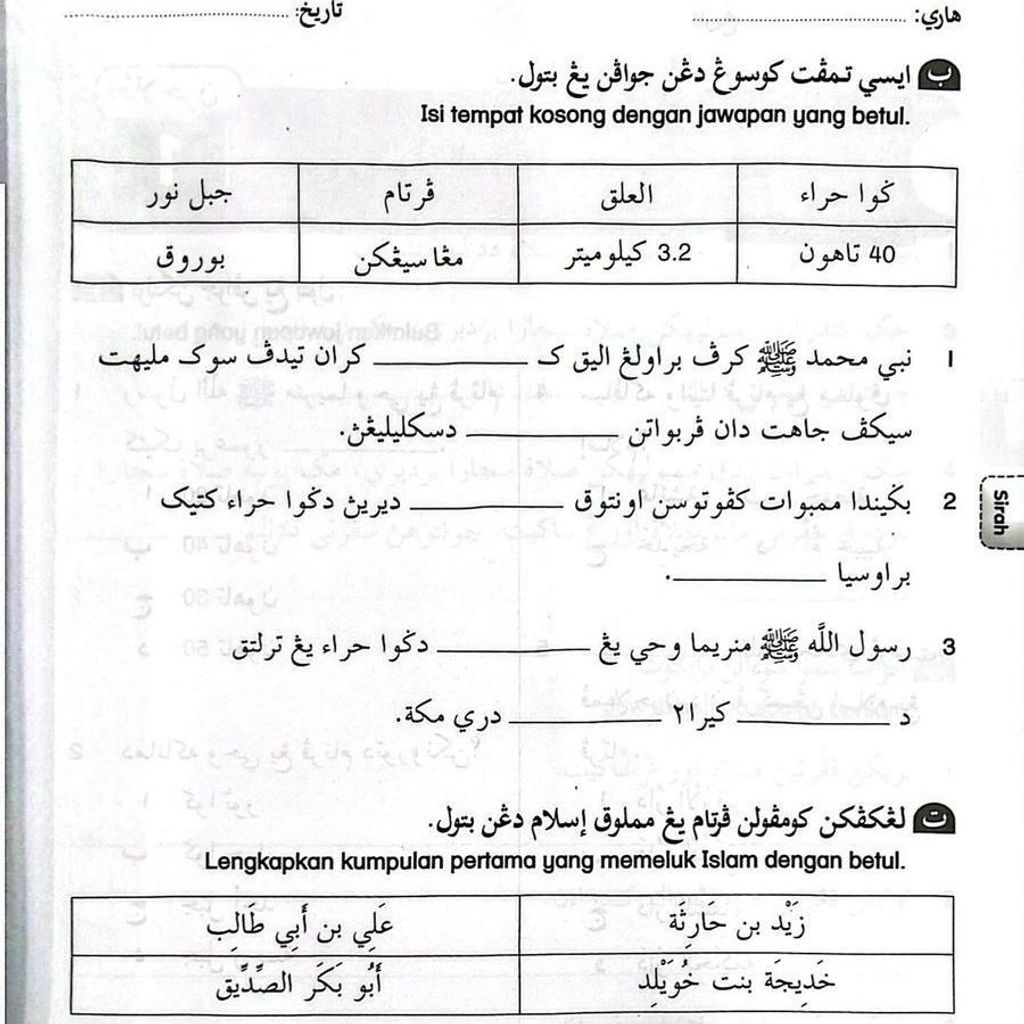 هاري: ........................ تاريخ: ........................
ب ايسي تمڤت كوسوڠ دڠن جواڤن يڠ بتول.
Isi tempat kosong dengan jawapan yang betul.
ݢوا حراء العلق ڤرتام جبل نور
40 تاهون 3.2 كيلوميتر مڠاسيڠكن بوروق
1 نبي محمد ﷺ كرڤ براولڠ اليق ك ________ كران تيدق سوك مليهت
سيكڤ جاهت دان ڤربواتن ________ دسكليليڠن.
2 بݢيندا ممبوات كڤوتوسن اونتوق ________ ديرين دݢوا حراء كتيک
براوسيا ________.
3 رسول الله ﷺ منريما وحي يڠ ________ دݢوا حراء يڠ ترلتق
د ________ كيرا٢ ________ دري مكة.
Sirah
ت لڠكڤكن كومڤولن ڤرتام يڠ مملوق إسلام دڠن بتول.
Lengkapkan kumpulan pertama yang memeluk Islam dengan betul.
زَيْد بن حَارِثَة عَلِي بن أَبِي طَالِب
خَدِيجَة بنت خُوَيْلِد أَبُو بَكَر الصِّدِّيق